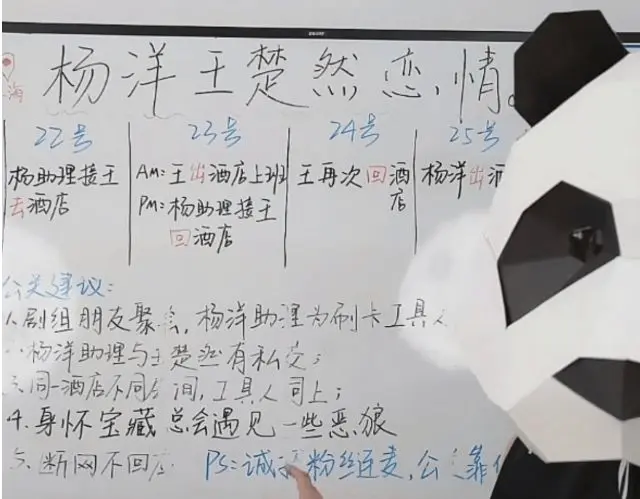 海
杨洋王楚然恋情。
22号
杨助理接王
去酒店
23号
AM:王出酒店上班
PM:杨助理接王
回酒店
24号
王再次回酒
店
25号
杨洋出酒
公关建议:
剧组朋友聚会,杨洋助理为刷卡工具人
杨洋助理与王楚然有私交;
同一酒店不同房间,工具人同上;
4.身怀宝藏总会遇见一些恶狼
断网不回应
PS:诚 粉丝连麦,公关靠